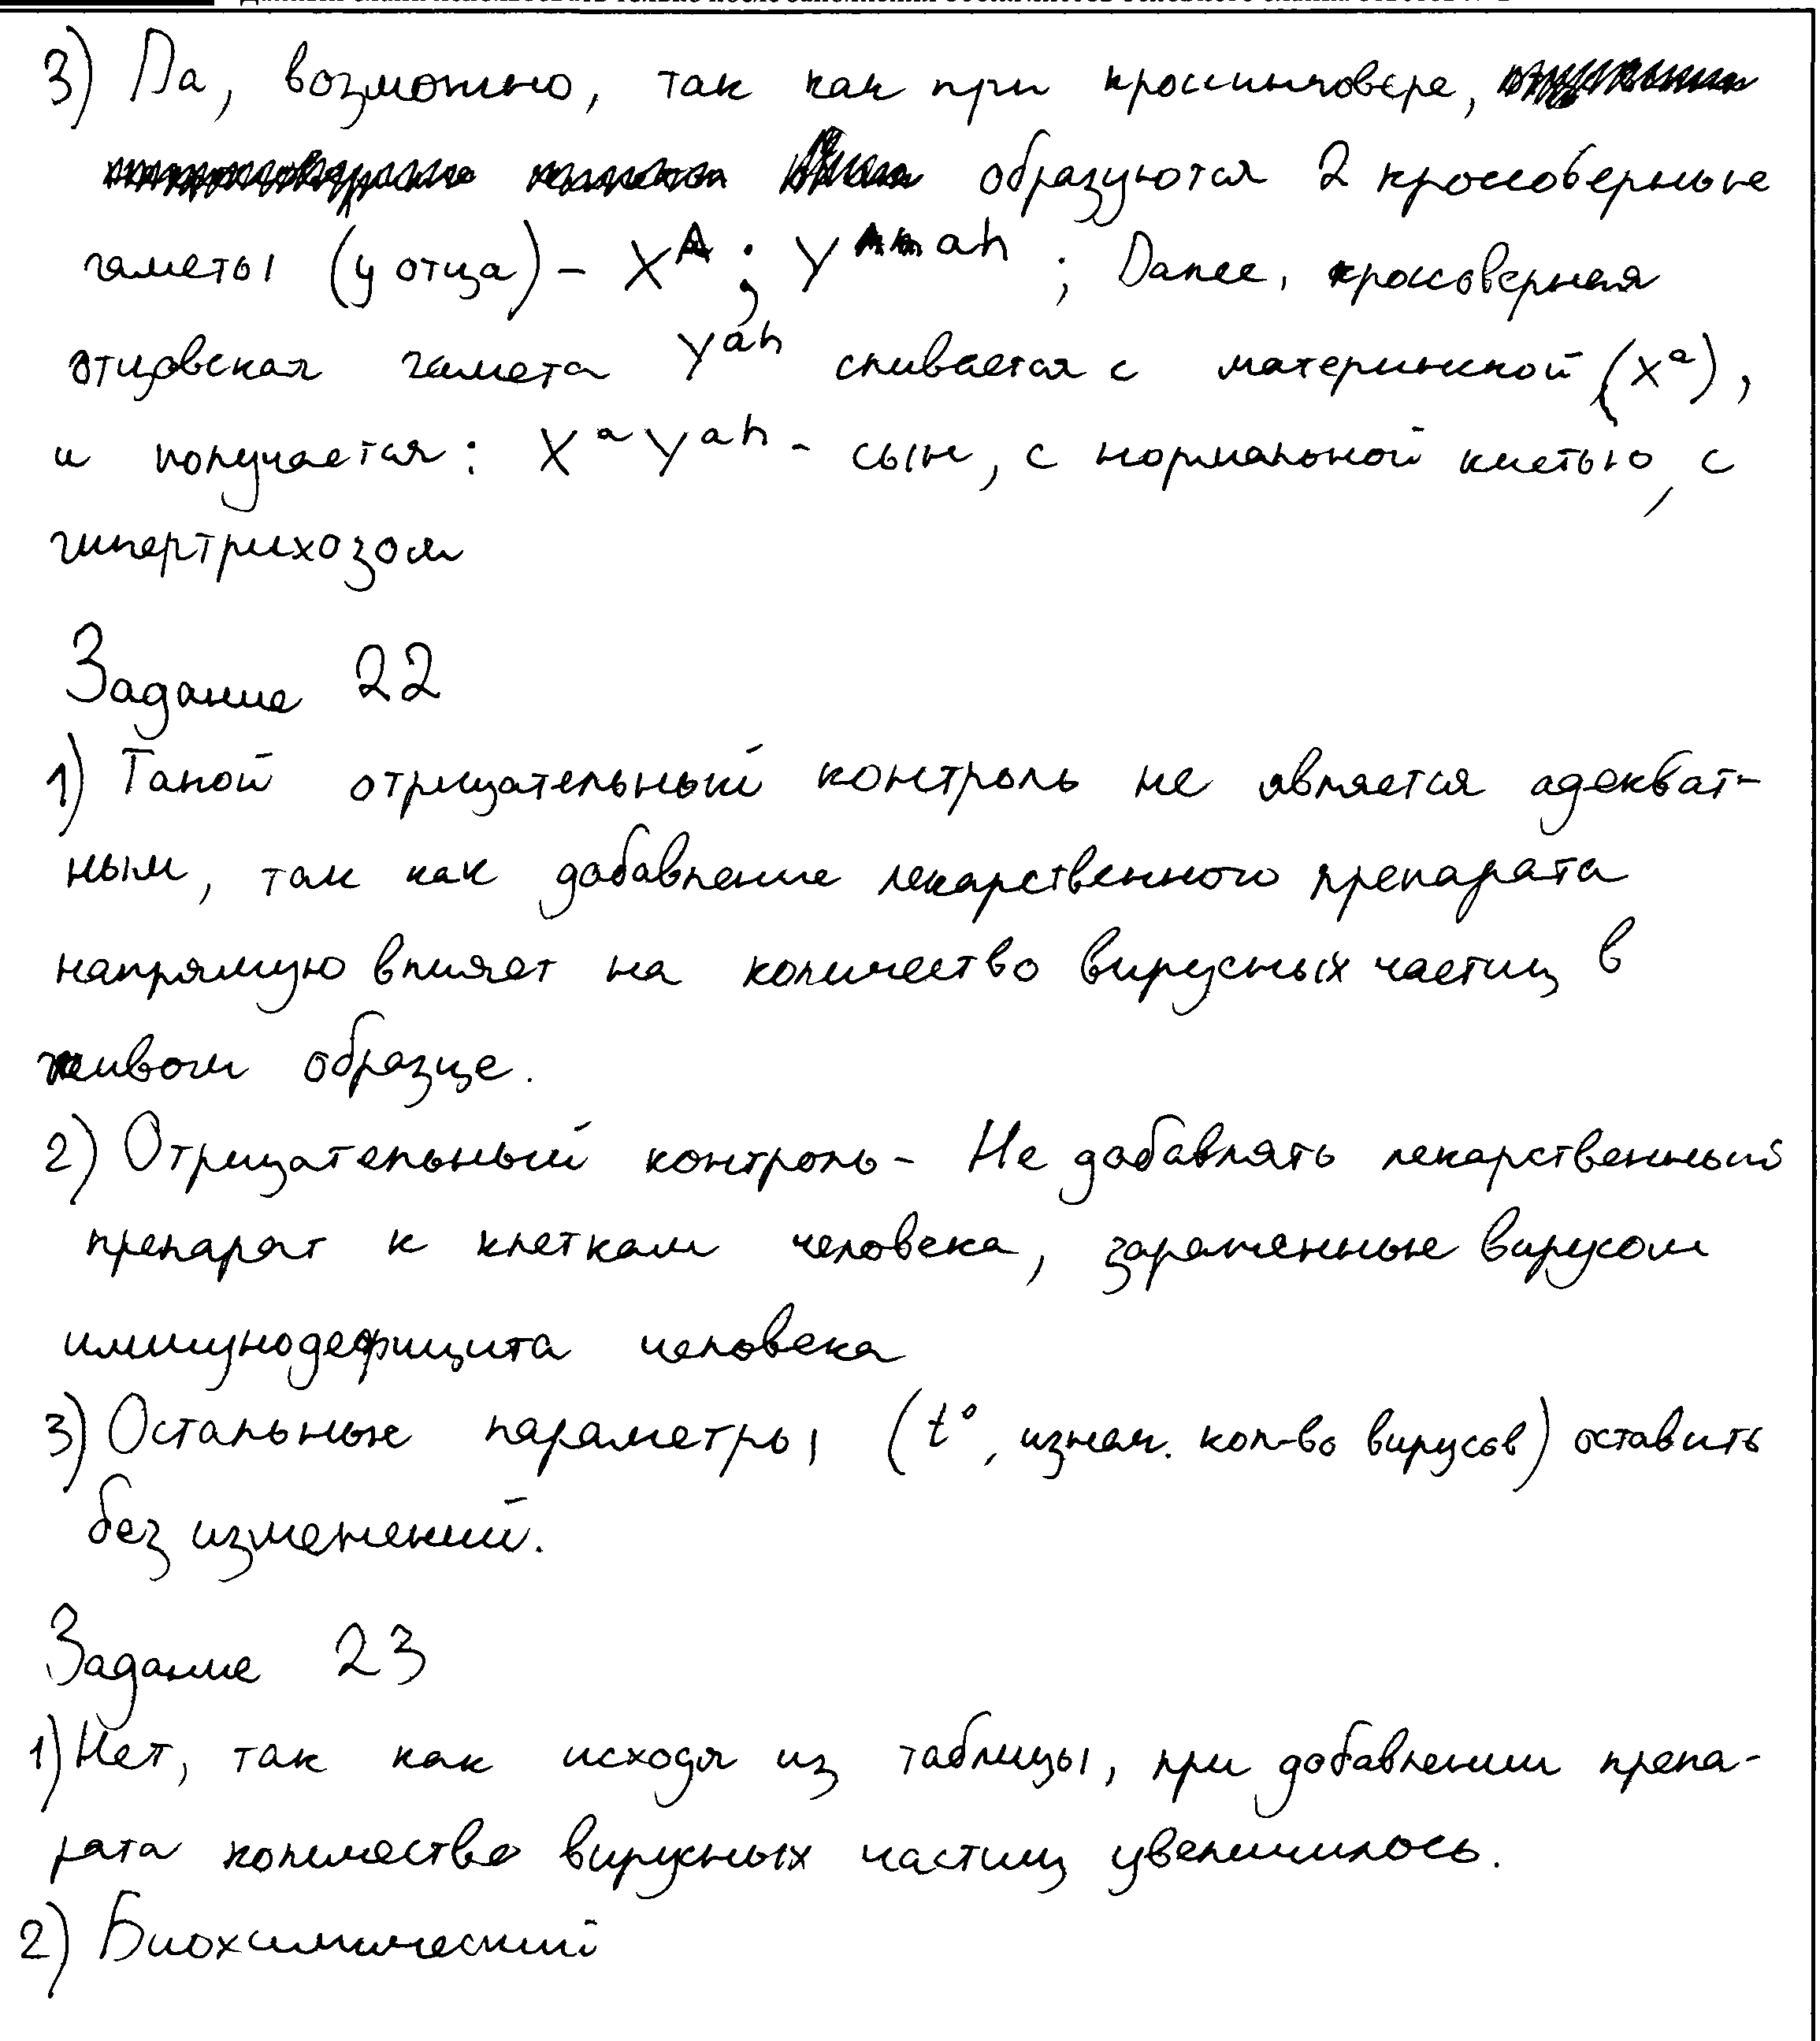 3) Да, возможно, так как при кроссинговере,
образуются 2 кроссоверные
гаметы (у отца) – X^A ; Y^ah ; Далее, кроссоверная
отцовская гамета Y^ah сливается с материнской (X^a),
и получается: X^a Y^ah - сын, с нормальной кистью, с
гипертрихозом
Задание 22
1) Такой отрицательный контроль не является адекват-
ным, так как добавление лекарственного препарата
напрямую влияет на количество вирусных частиц в
живом образце.
2) Отрицательный контроль - Не добавлять лекарственный
препарат к клеткам человека, зараженные вирусом
иммунодефицита человека
3) Остальные параметры (t°, изнач. кол-во вирусов) оставить
без изменений.
Задание 23
1) Нет, так как исходя из таблицы, при добавлении препа-
рата количество вирусных частиц увеличилось.
2) Биохимический